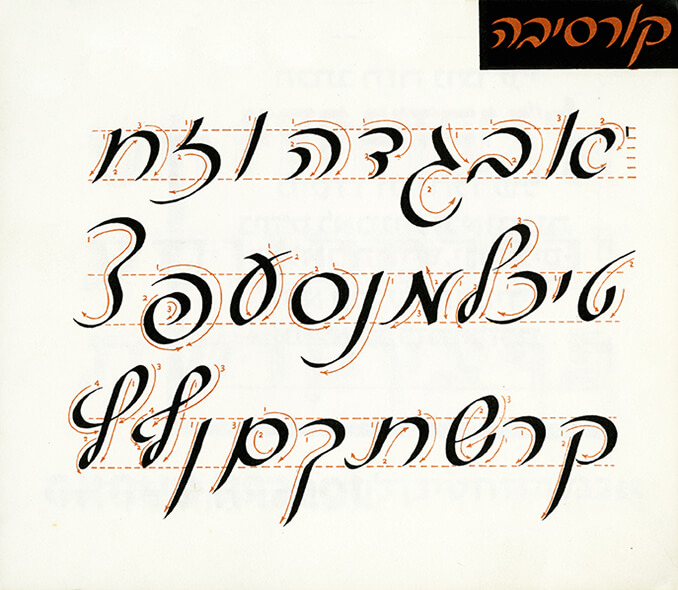 קורסיבה
אבגדהוזח
טיכלמנסעפצ
קרשתךםןףץ